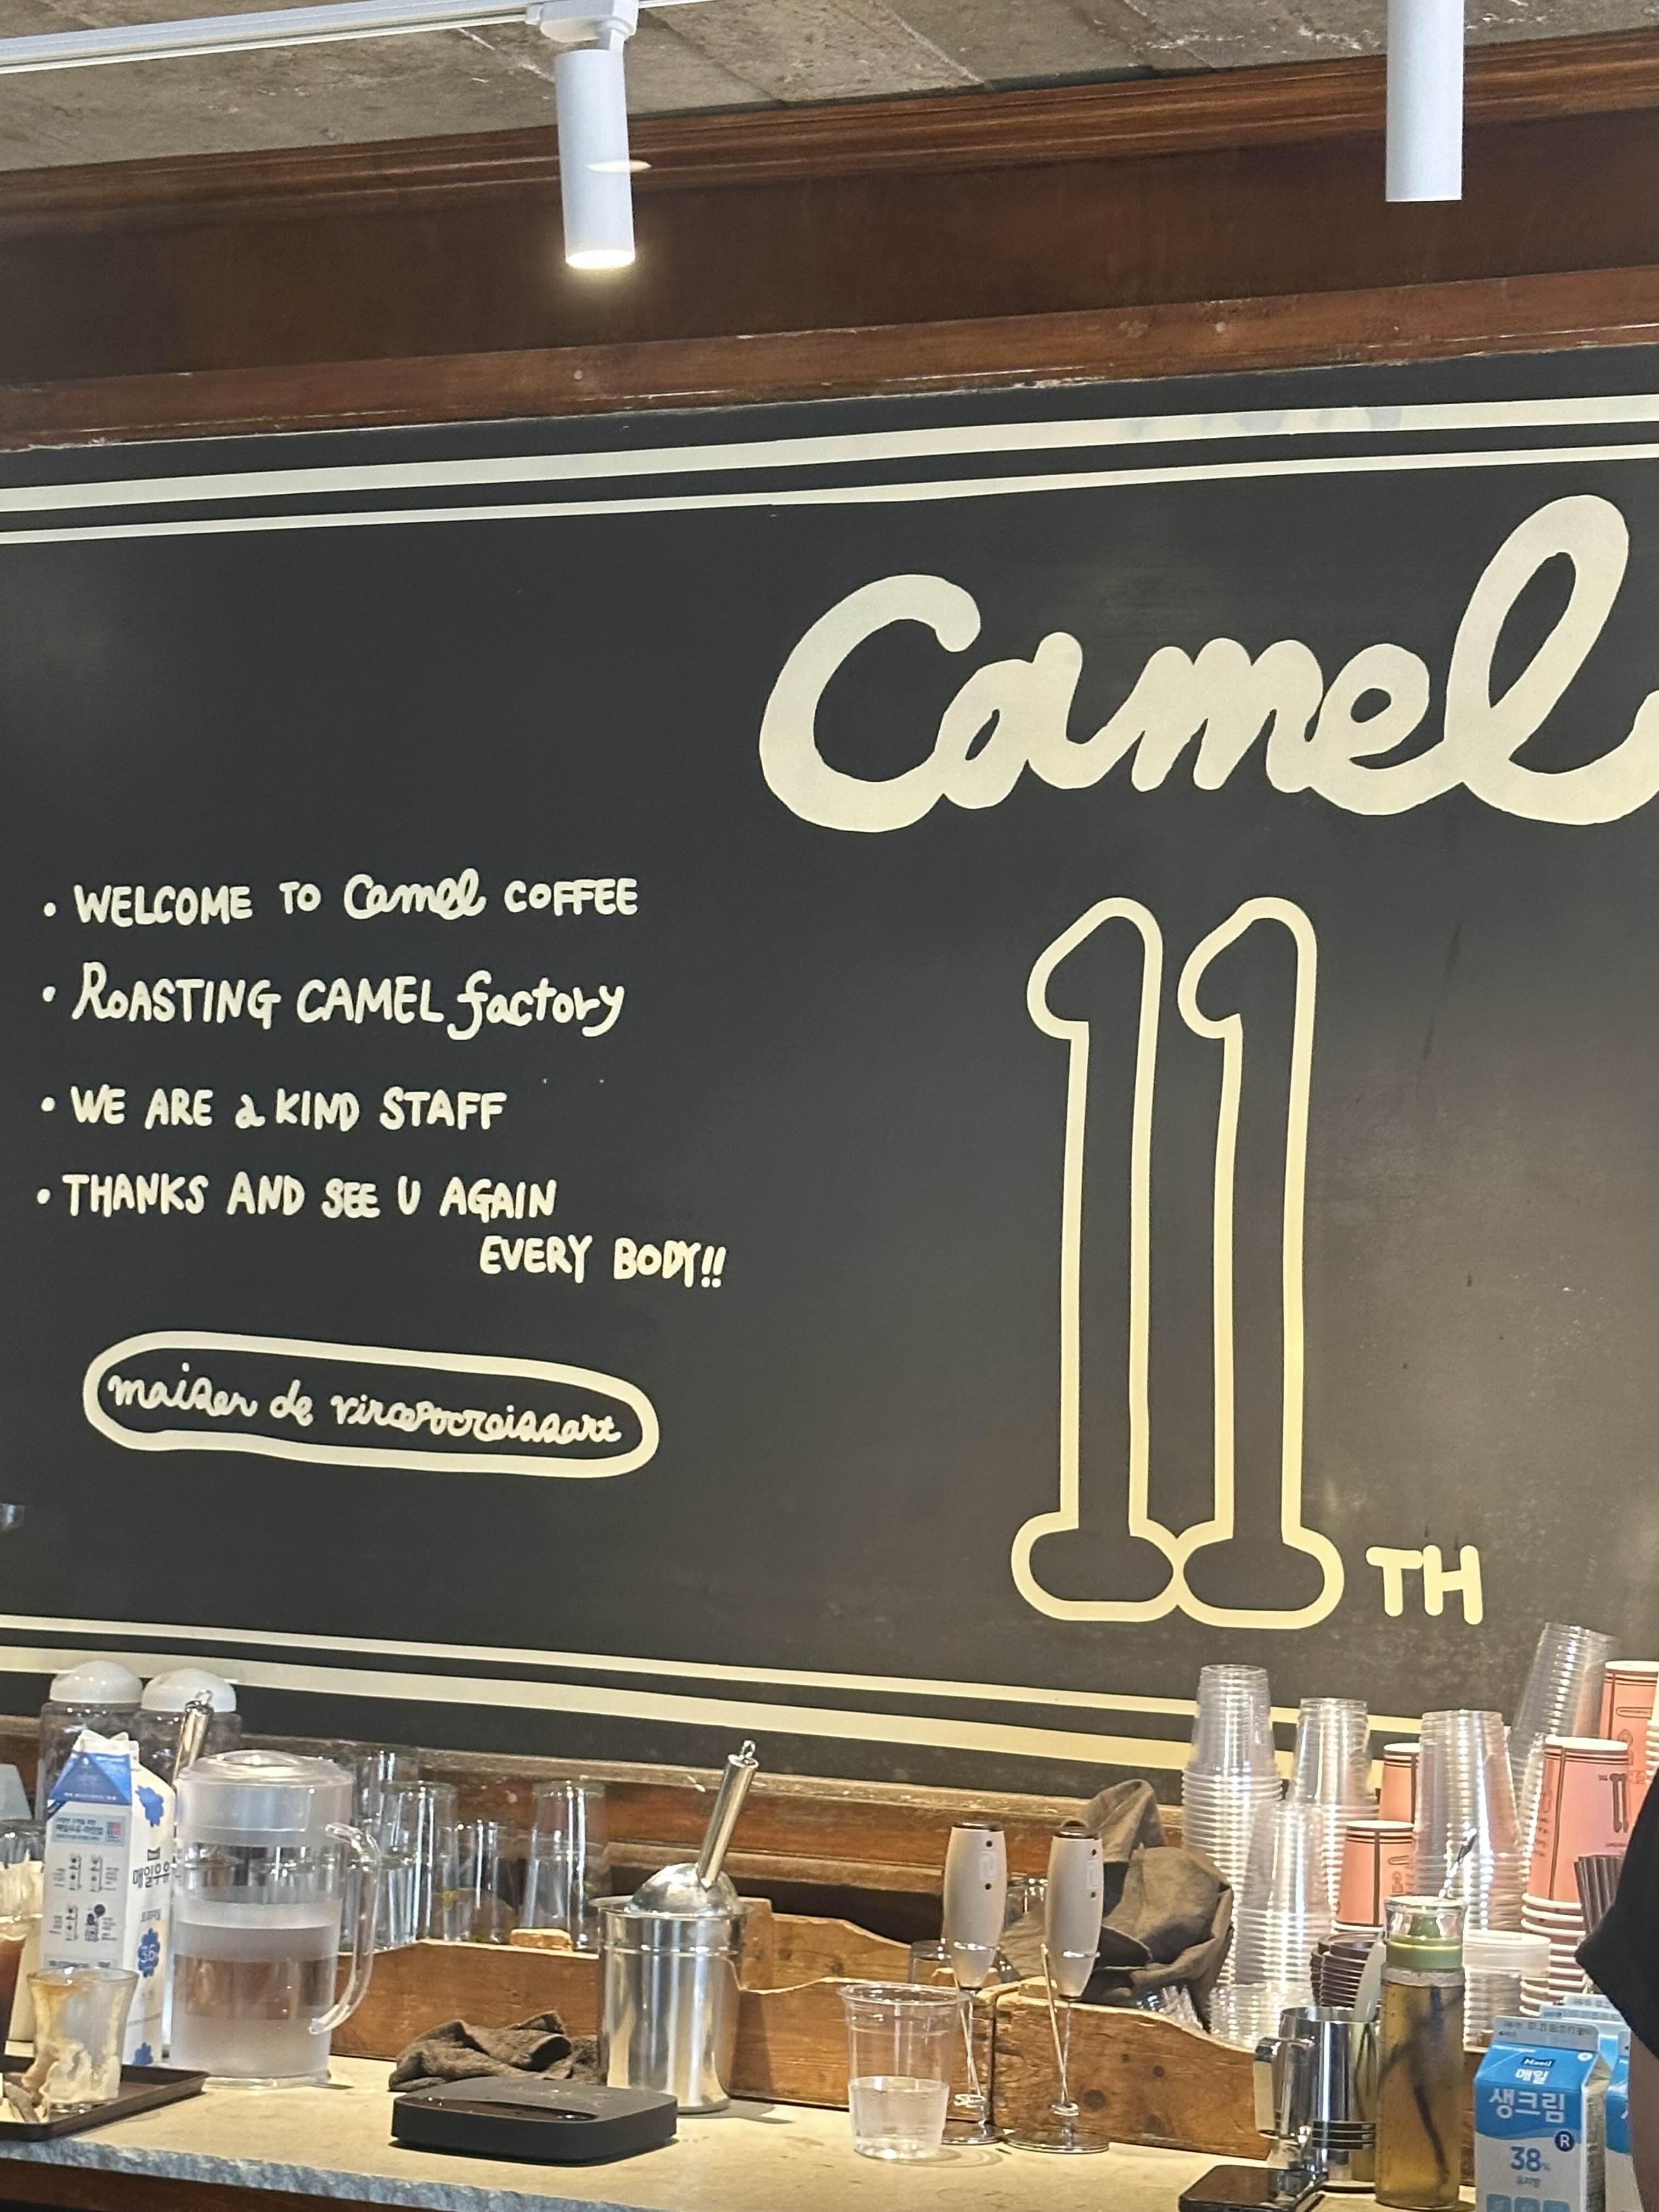 Camel
11TH
• WELCOME TO Camel COFFEE
• ROASTING CAMEL factory
• WE ARE a KIND STAFF
• THANKS AND SEE U AGAIN
EVERY BODY!!
de
매일우유
Maeil
매일
생크림
38%
R
유지방